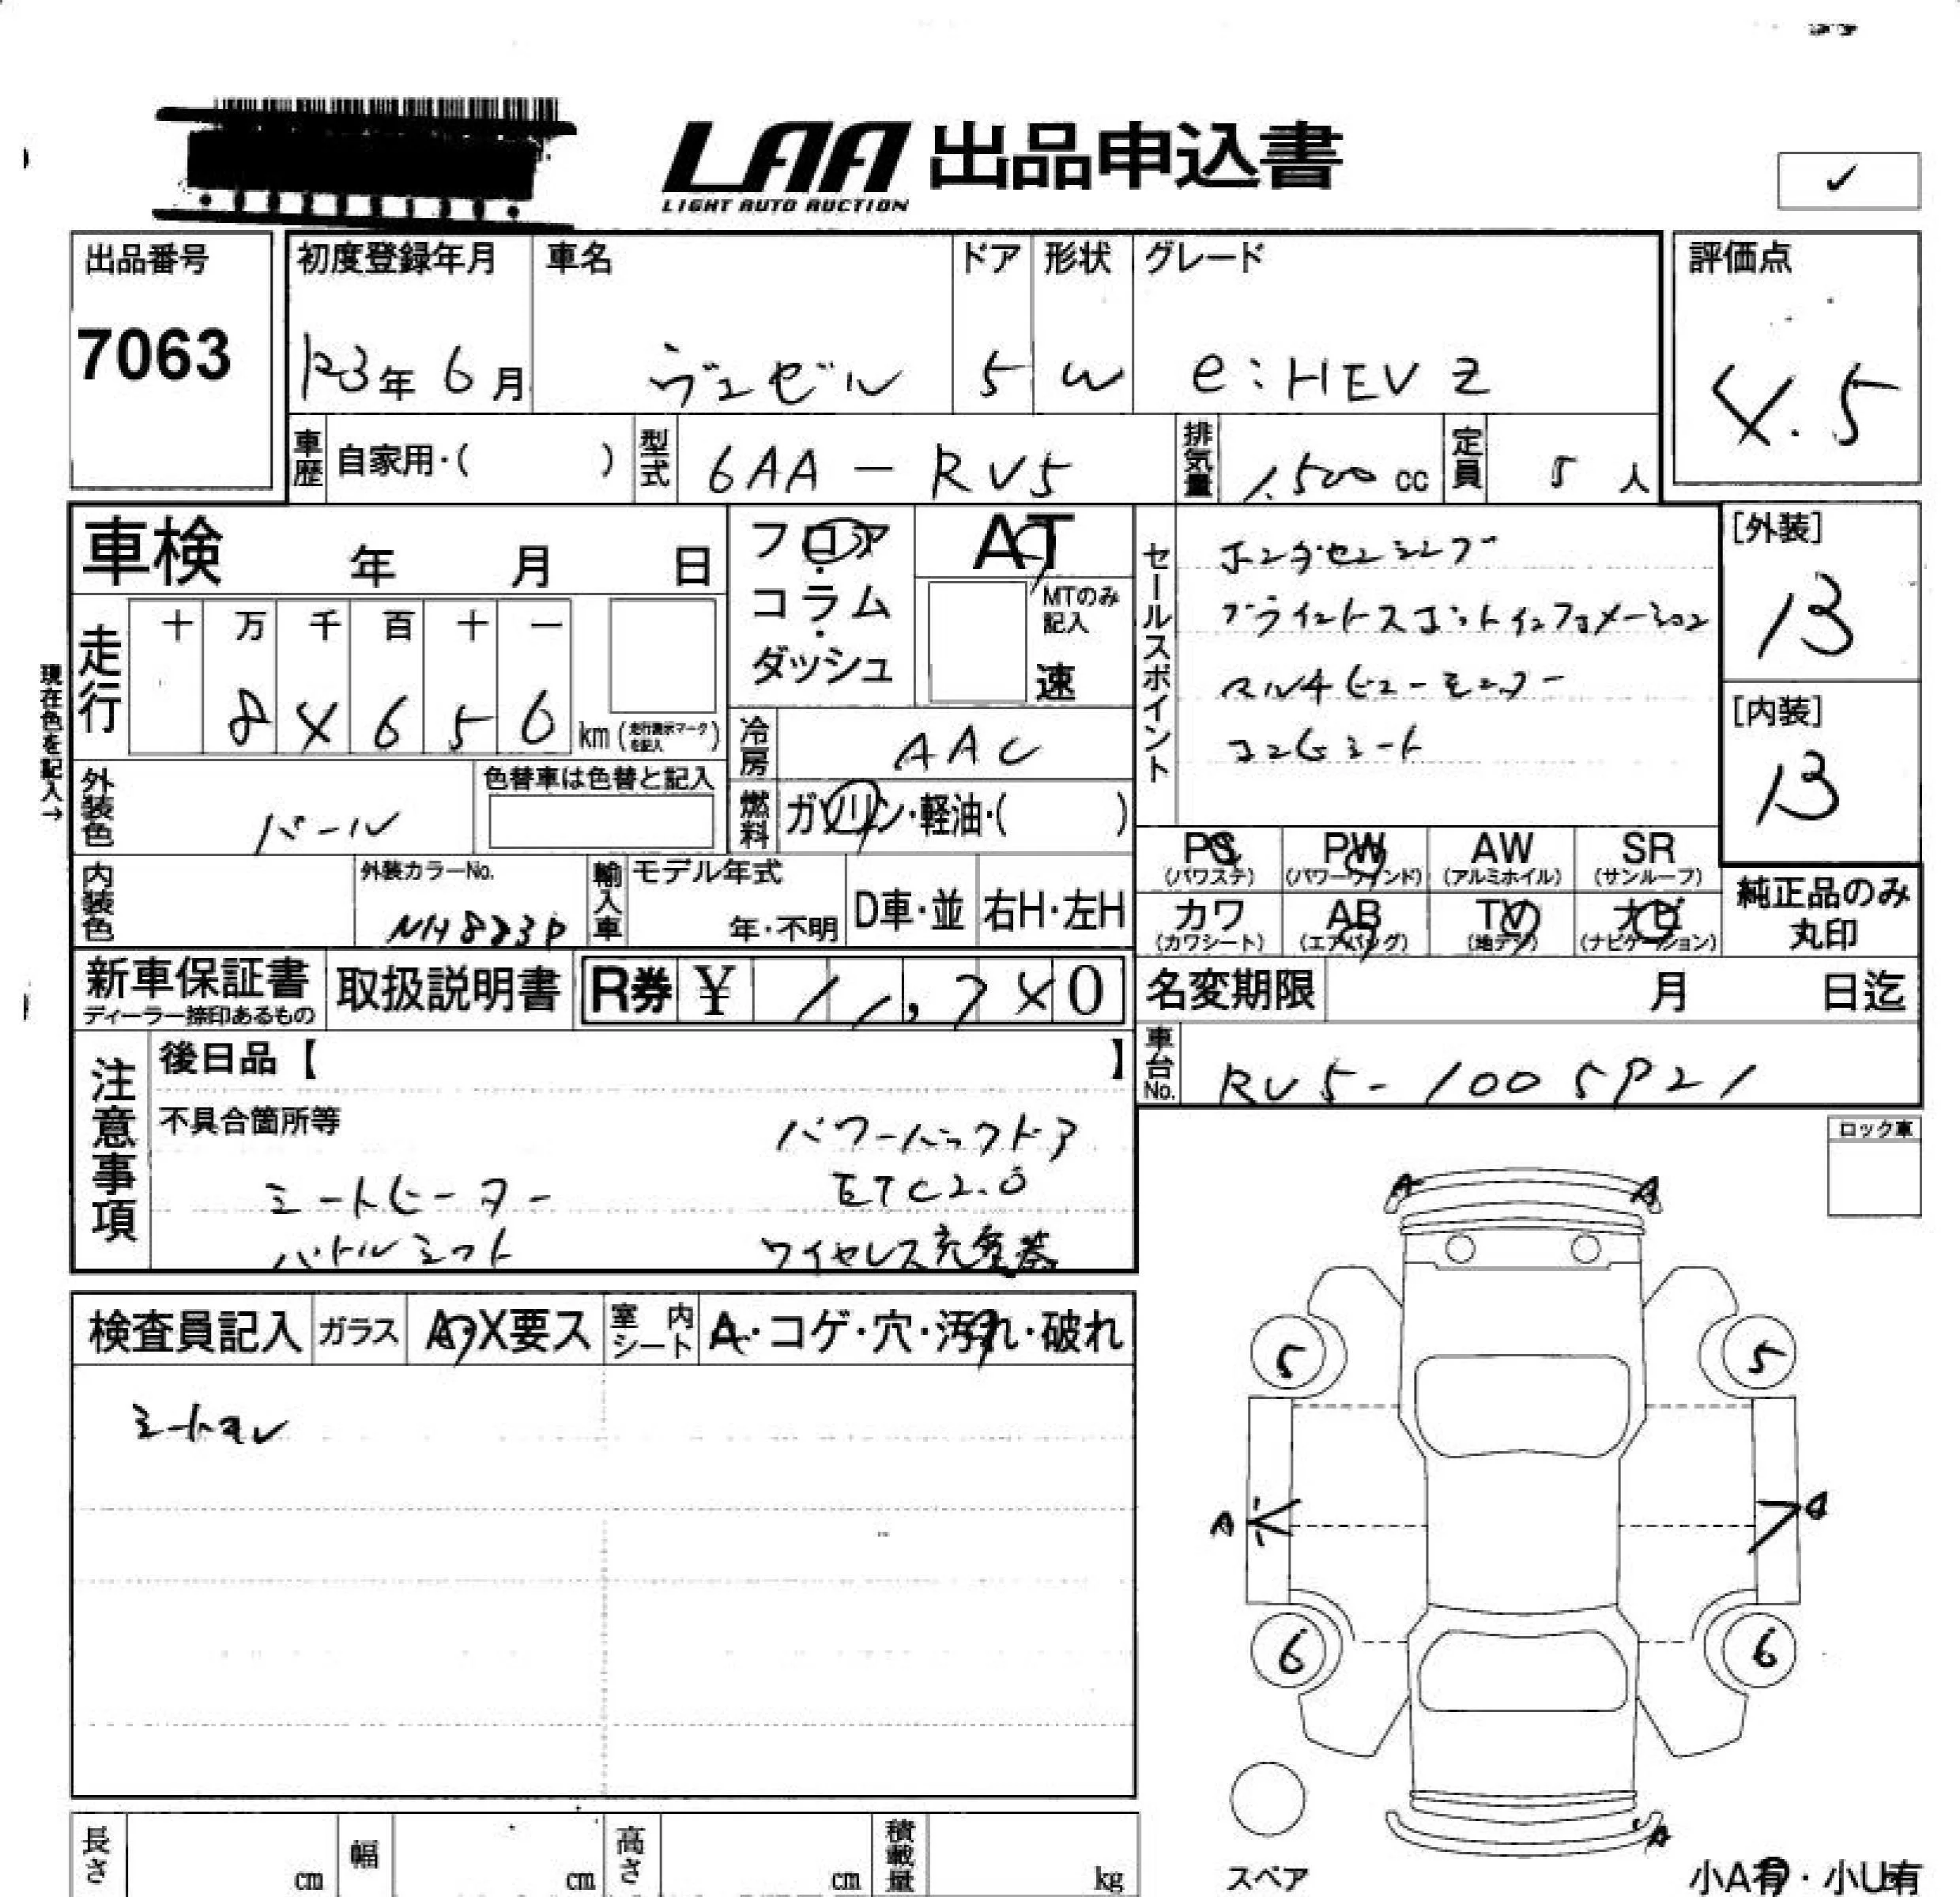 LAA 出品申込書
LIGHT AUTO AUCTION
✓
出品番号
7063
初度登録年月
R3年 6月
車名
ヴェゼル
ドア
5
形状
W
グレード
e:HEV Z
評価点
4.5
車歴 自家用・( )
型式 6AA - RV5
排気量 1,500 cc
定員 5 人
車検 年 月 日
フロア・コラム・ダッシュ
AT
MTのみ記入
速
セールスポイント
ホンダセンシング
ブラインドスポットインフォメーション
マルチビューモニター
コンビシート
[外装]
B
[内装]
B
現在色を記入→
走行
十 万 千 百 十 一
8 4 6 5 6 km (走行表示マークを記入)
冷房 AAC
燃料 ガソリン・軽油・( )
外装色 パール
色替車は色替と記入
内装色
外装カラーNo.
NH883P
輸入車
モデル年式
年・不明
D車・並
右H・左H
PS (パワステ)
PW (パワーウィンド)
AW (アルミホイル)
SR (サンルーフ)
カワ (カワシート)
AB (エアバッグ)
TV (地デジ)
ナビ (ナビゲーション)
純正品のみ丸印
新車保証書
ディーラー捺印あるもの
取扱説明書
R券 ¥ 11,740
名変期限 月 日迄
車台No. RV5-1005921
注意事項
後日品【 】
不具合箇所等
パワーバックドア
シートヒーター
ETC2.0
パドルシフト
ワイヤレス充電器
ロック車
検査員記入
ガラス A・X要ス
室内シート A・コゲ・穴・汚れ・破れ
シートヨレ
A A
5 5
A A
6 6
A
スペア
小A有・小U有
長さ cm
幅 cm
高さ cm
積載量 kg